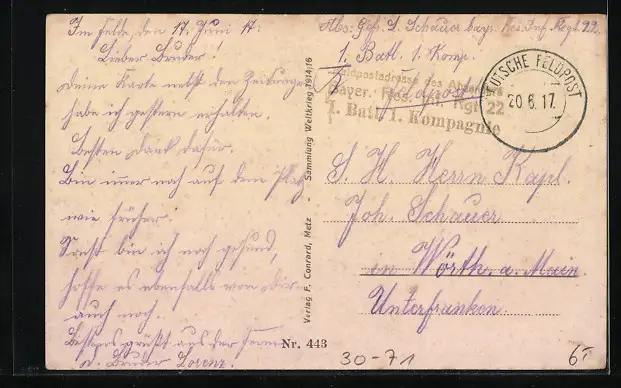 Im Felde, den 17. Juni 17.
Lieber Bruder!
Deine Karte nebst den Zeitungen
habe ich gestern erhalten.
Besten Dank dafür.
Bin immer noch auf dem Platz
wie früher.
Sonst bin ich noch gesund,
hoffe es ebenfalls von Dir
auch noch.
Bestens grüßt aus der Ferne
d. Bruder Lorenz.
Abs: Gefr. L. Schauer bayr. Res. Inf. Regt. 22
1. Batl. 1. Komp.
Feldpostadresse des Absenders
Bayer. Res. Inf. Rgt 22
I. Batl. 1. Kompagnie
DEUTSCHE FELDPOST
20.6.17.
S. H. Herrn Kapl.
Joh. Schauer
in Wörth a. Main
Unterfranken.
Verlag F. Conrard, Metz - Sammlung Weltkrieg 1914/16
Nr. 443
30-71
6,-